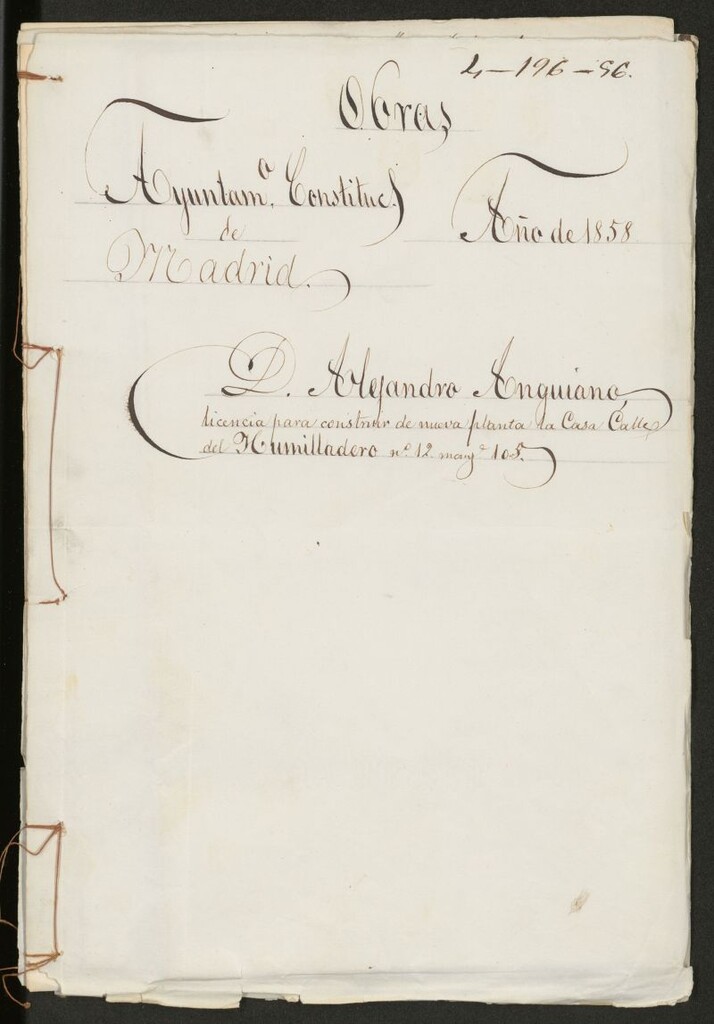 4-196-96.
Obras
Ayuntam.º Constituc.l
de
Madrid.
Año de 1858
D. Alejandro Anguiano,
licencia para construir de nueva planta la Casa Calle
del Humilladero nº 12 manz.ª 105.